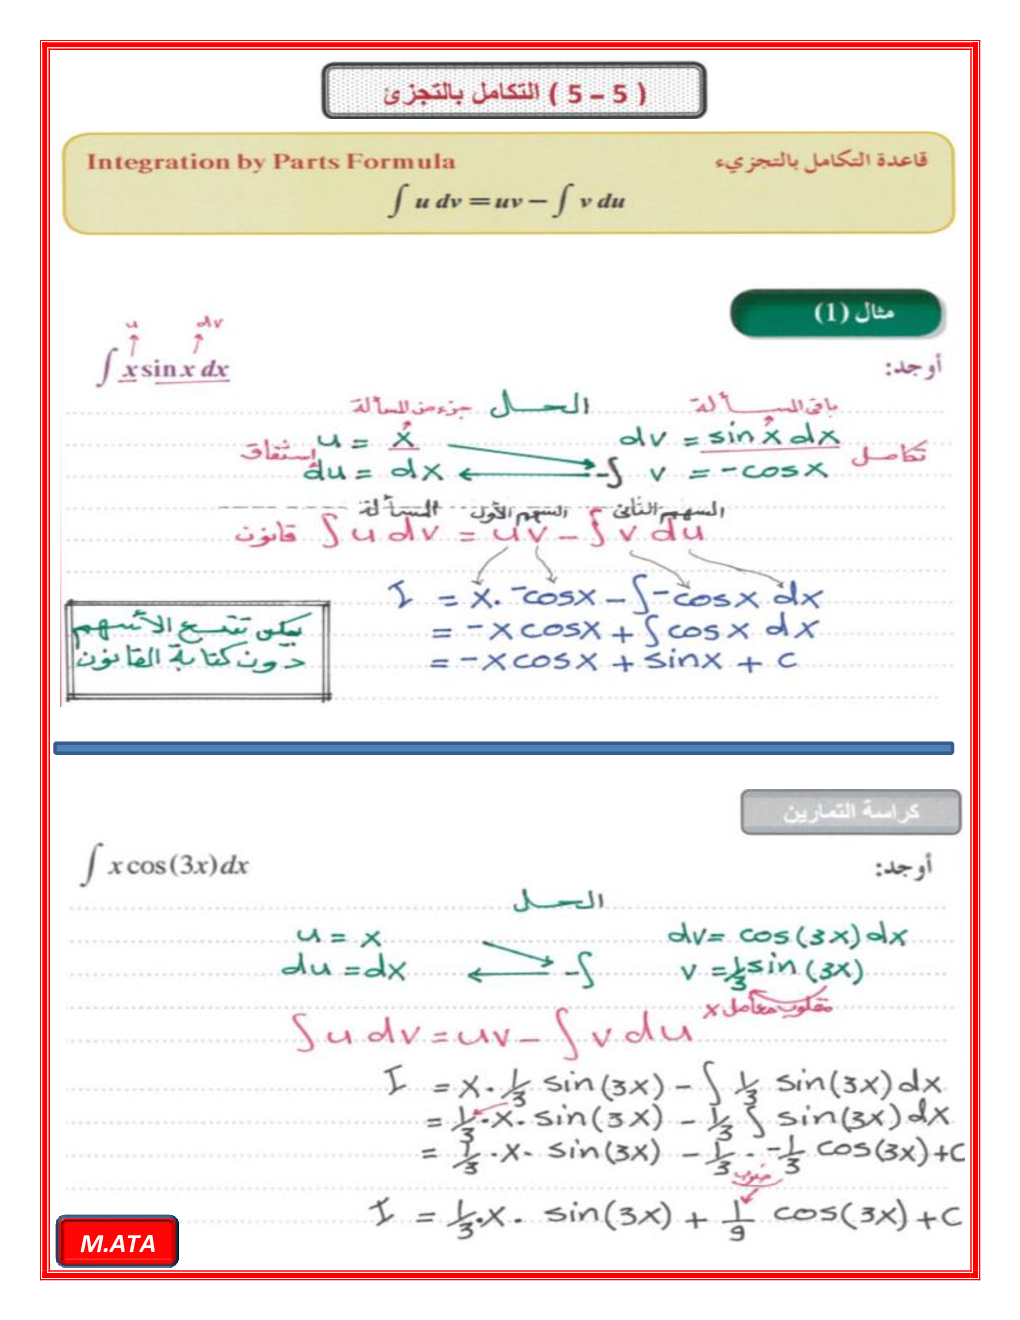 ( 5 – 5 ) التكامل بالتجزئ
Integration by Parts Formula قاعدة التكامل بالتجزيء
∫ u dv = uv − ∫ v du
مثال (1)
u dv
أوجد: ∫ x sin x dx
الحل
جزء من المسألة باقي المسألة
u = x dv = sin x dx
اشتقاق تكامل
du = dx -∫ v = -cosx
المسألة السهم الأول السهم الثاني
قانون ∫ u dv = uv - ∫ v du
I = x. -cosx - ∫ -cosx dx
= -x cosx + ∫ cosx dx
= -x cosx + sinx + c
يمكن تتبع الأسهم
دون كتابة القانون
كراسة التمارين
أوجد: ∫ x cos(3x) dx
الحل
u = x dv = cos(3x) dx
du = dx -∫ v = 1/3 sin(3x)
مقلوب معامل x
∫ u dv = uv - ∫ v du
I = x. 1/3 sin(3x) - ∫ 1/3 sin(3x) dx
= 1/3 .x. sin(3x) - 1/3 ∫ sin(3x) dx
= 1/3 .x. sin(3x) - 1/3 . -1/3 cos(3x) + C
I = 1/3 .x. sin(3x) + 1/9 cos(3x) + C
M.ATA